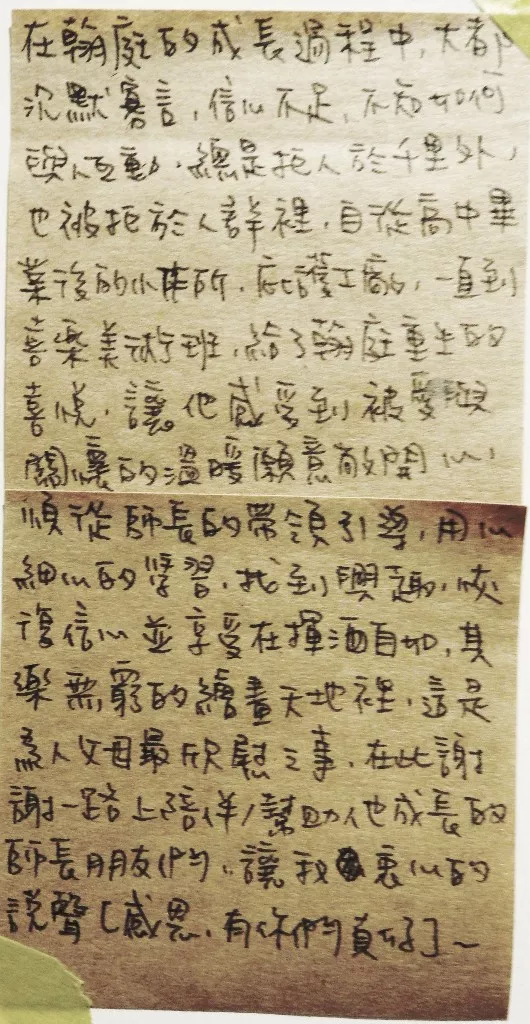 在翰庭的成長過程中,大都
沉默寡言,信心不足,不知如何
與人互動,總是拒人於千里外,
也被拒於人群裡,自從高中畢
業後的小作所,庇護工廠,一直到
喜樂美術班,給了翰庭重生的
喜悅,讓他感受到被愛與
關懷的溫暖願意敞開心,
順從師長的帶領引導,用心
細心的學習,找到興趣,恢
復信心並享受在揮洒自如,其
樂無窮的繪畫天地裡,這是
為人父母最欣慰之事,在此謝
謝一路上陪伴/幫助他成長的
師長朋友們,讓我衷心的
說聲[感恩,有你們真好]~